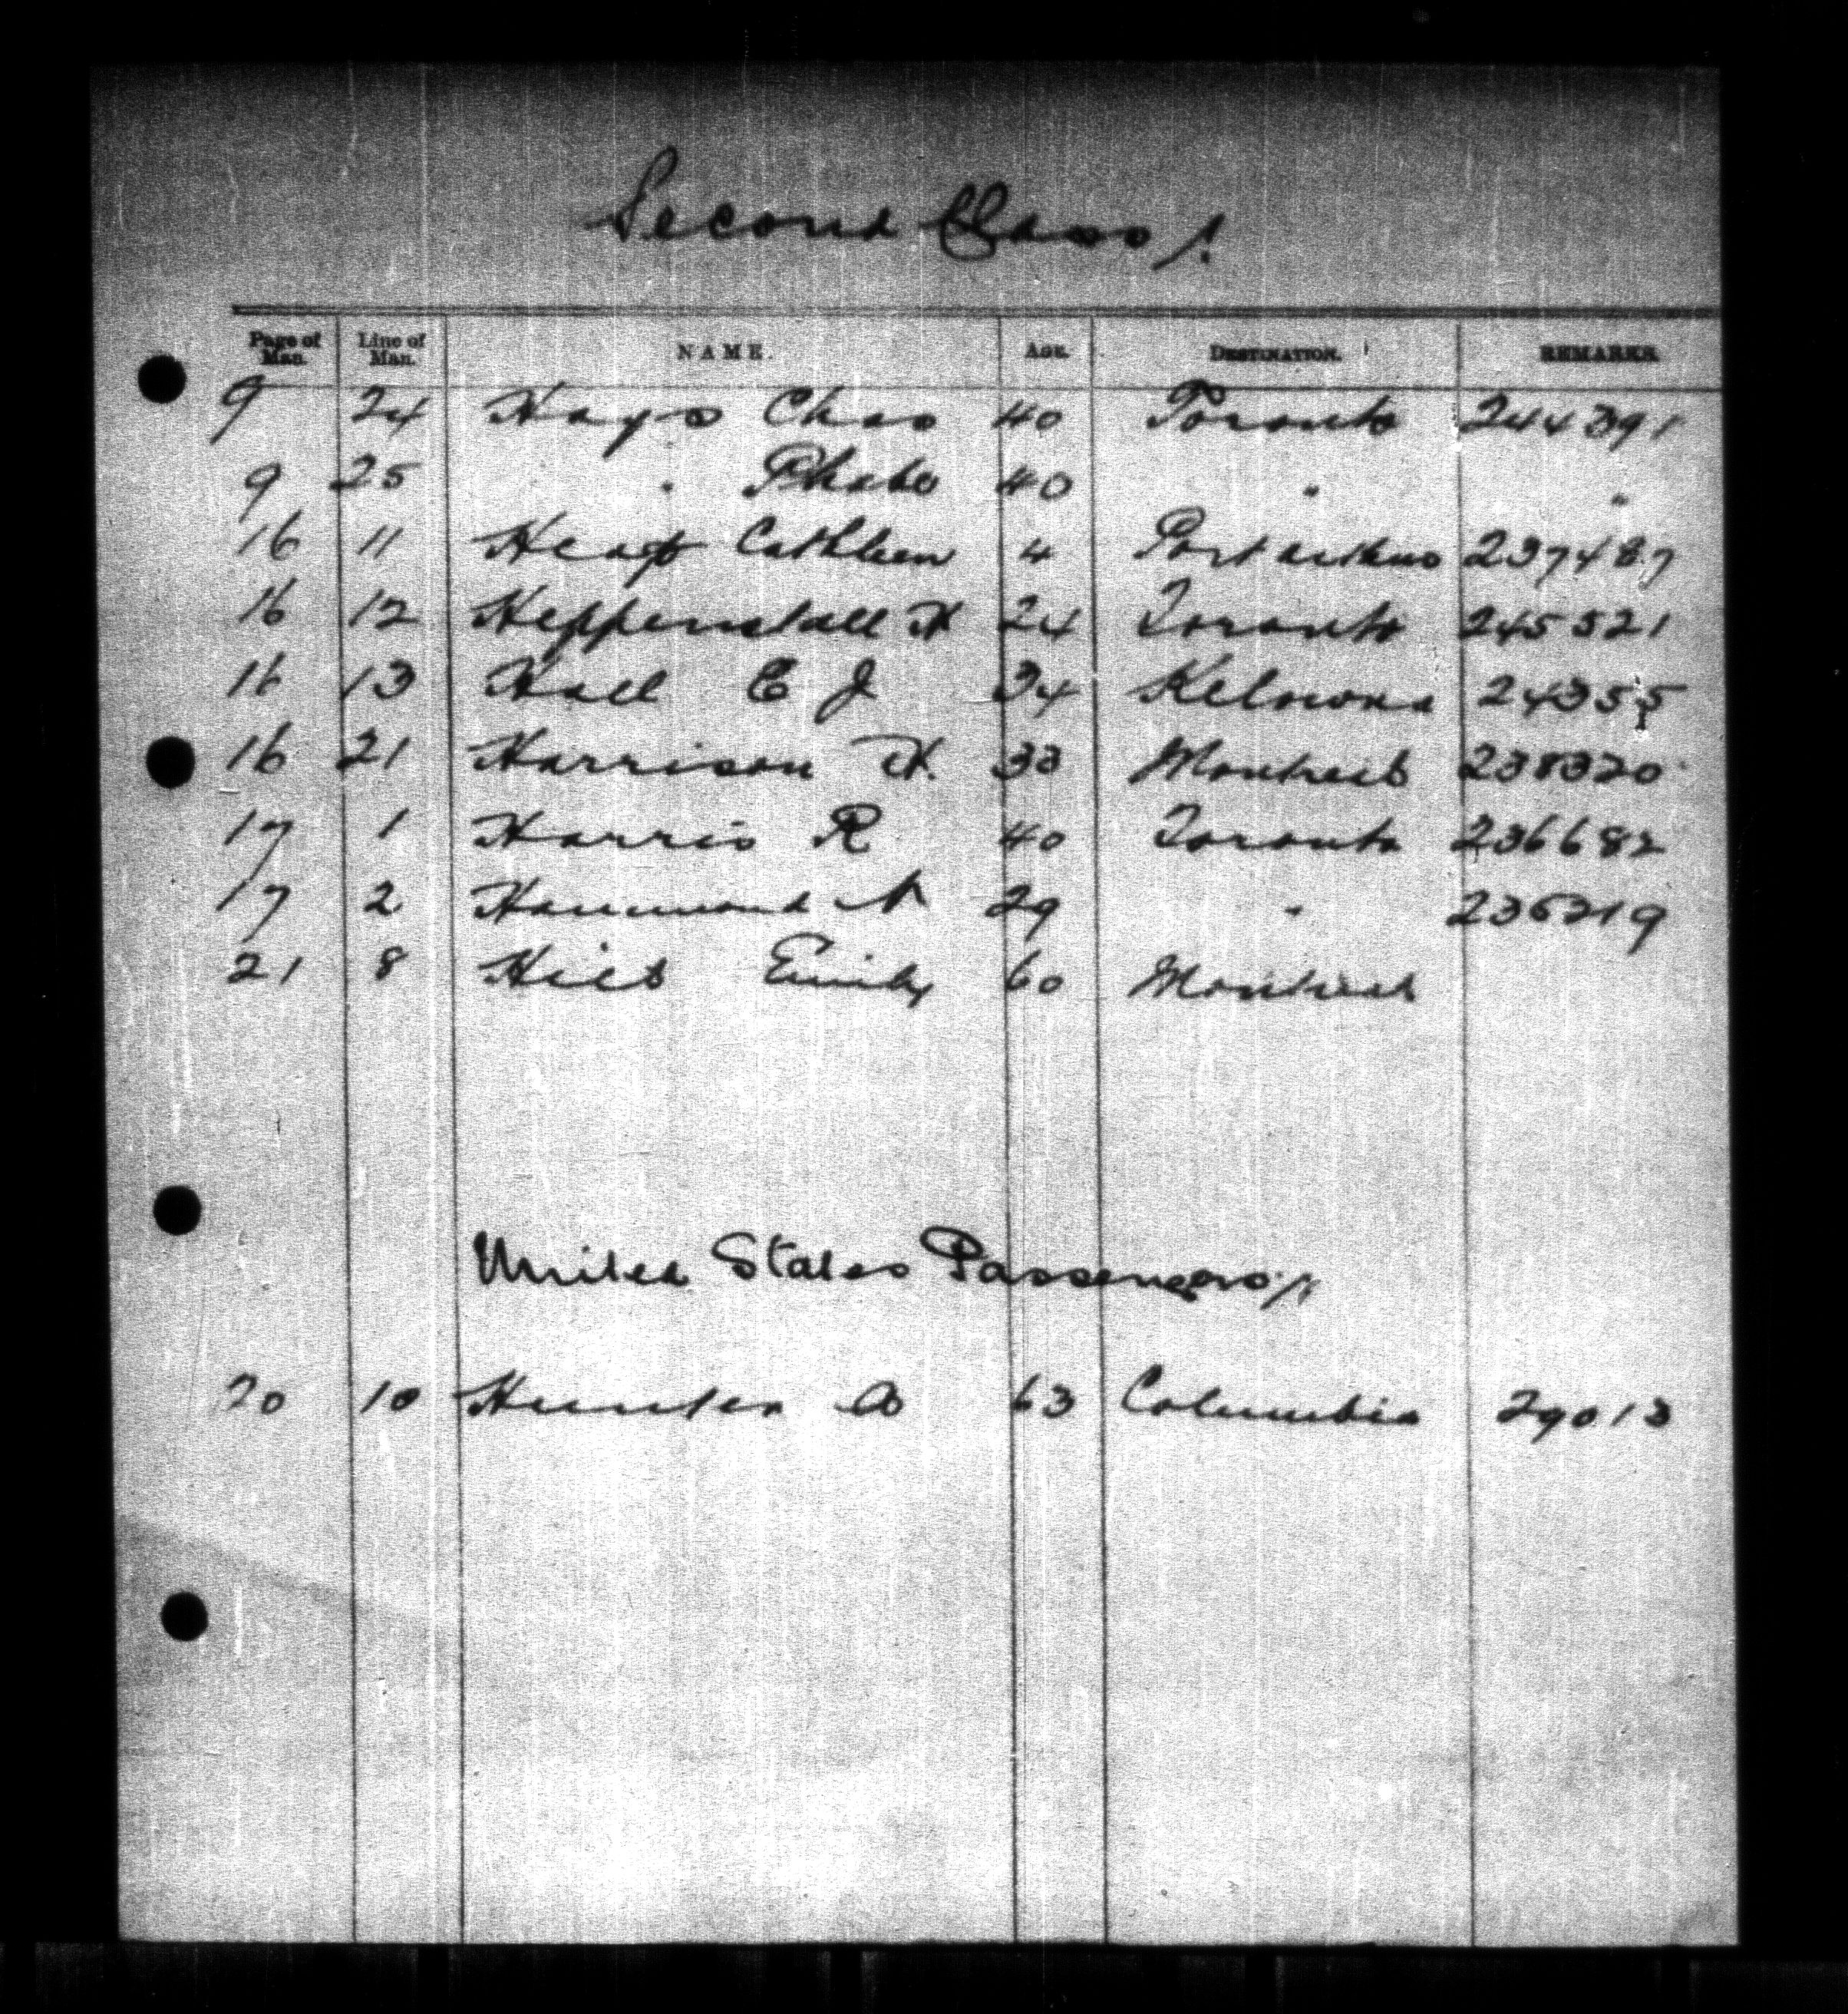 Second Class/.
Page of Man. Line of Man. NAME. AGE. DESTINATION. REMARKS
9 24 Hays Chas 40 Toronto 244391
9 25 " Phebe 40 " "
16 11 Heap Cathleen 4 Port Arthur 237487
16 12 Heppenstall H 24 Toronto 245521
16 13 Hall E J 34 Kelowna 24355
16 21 Harrison H. 33 Montreal 238320
17 1 Harris R 40 Toronto 236682
17 2 Hammond A 29 " 236219
21 8 Hill Emily 60 Montreal
United States Passengers/.
20 10 Hunter 63 Columbia 29013